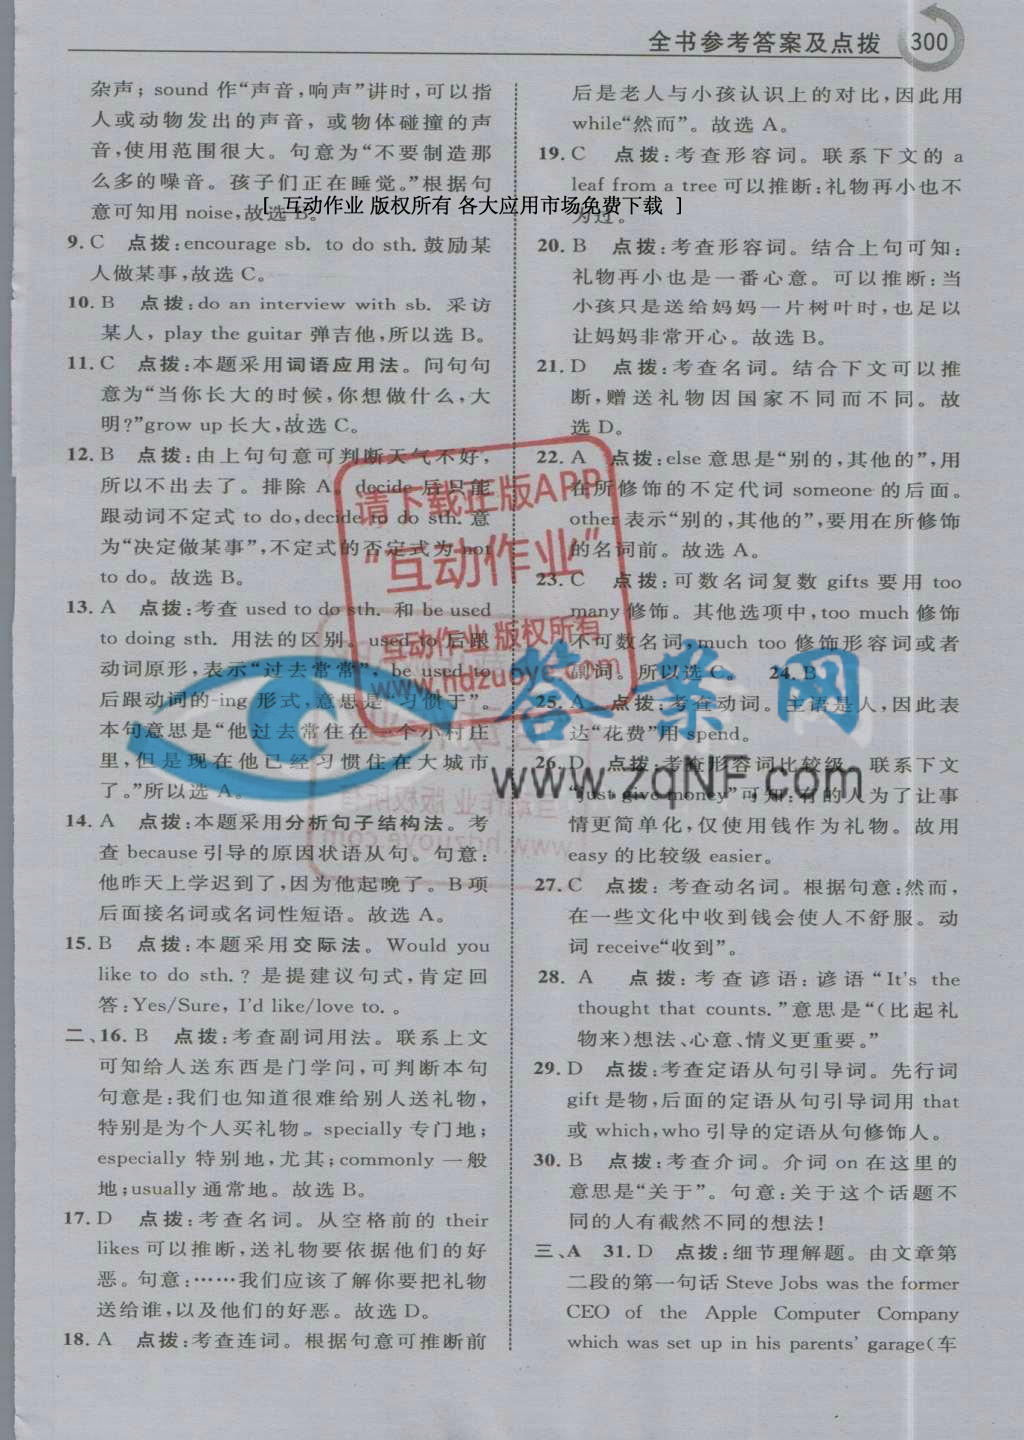 全书参考答案及点拨 300
杂声；sound 作“声音，响声”讲时，可以指
人或动物发出的声音，或物体碰撞的声
音，使用范围很大。句意为“不要制造那
么多的噪音。孩子们正在睡觉。”根据句
意可知用 noise，故选 B。
[ 互动作业 版权所有 各大应用市场免费下载 ]
9. C 点拨：encourage sb. to do sth. 鼓励某
人做某事，故选 C。
10. B 点拨：do an interview with sb. 采访
某人，play the guitar 弹吉他，所以选 B。
11. C 点拨：本题采用词语应用法。问句句
意为“当你长大的时候，你想做什么，大
明?”grow up 长大，故选 C。
12. B 点拨：由上句句意可判断天气不好，
所以不出去了。排除 A。decide 后只能
跟动词不定式 to do，decide to do sth. 意
为“决定做某事”，不定式的否定式为 not
to do。故选 B。
13. A 点拨：考查 used to do sth. 和 be used
to doing sth. 用法的区别。used to 后跟
动词原形，表示“过去常常”，be used to
后跟动词的-ing 形式，意思是“习惯于”。
本句意思是“他过去常住在一个小村庄
里，但是现在他已经习惯住在大城市
了。”所以选 A。
14. A 点拨：本题采用分析句子结构法。考
查 because 引导的原因状语从句。句意：
他昨天上学迟到了，因为他起晚了。B 项
后面接名词或名词性短语。故选 A。
15. B 点拨：本题采用交际法。Would you
like to do sth.? 是提建议句式，肯定回
答：Yes/Sure, I'd like/love to.。
二、16. B 点拨：考查副词用法。联系上文
可知给人送东西是门学问，可判断本句
句意是：我们也知道很难给别人送礼物，
特别是为个人买礼物。specially 专门地；
especially 特别地，尤其；commonly 一般
地；usually 通常地。故选 B。
17. D 点拨：考查名词。从空格前的 their
likes 可以推断，送礼物要依据他们的好
恶。句意：……我们应该了解你要把礼物
送给谁，以及他们的好恶。故选 D。
18. A 点拨：考查连词。根据句意可推断前
后是老人与小孩认识上的对比，因此用
while“然而”。故选 A。
19. C 点拨：考查形容词。联系下文的 a
leaf from a tree 可以推断：礼物再小也不
为过。
20. B 点拨：考查形容词。结合上句可知：
礼物再小也是一番心意。可以推断：当
小孩只是送给妈妈一片树叶时，也足以
让妈妈非常开心。故选 B。
21. D 点拨：考查名词。结合下文可以推
断，赠送礼物因国家不同而不同。故
选 D。
22. A 点拨：else 意思是“别的，其他的”，用
在所修饰的不定代词 someone 的后面。
other 表示“别的，其他的”，要用在所修饰
的名词前。故选 A。
23. C 点拨：可数名词复数 gifts 要用 too
many 修饰。其他选项中，too much 修饰
不可数名词，much too 修饰形容词或者
副词。所以选 C。 24. B
25. A 点拨：考查动词。主语是人，因此表
达“花费”用 spend。
26. D 点拨：考查形容词比较级。联系下文
“just give money”可知：有的人为了让事
情更简单化，仅使用钱作为礼物。故用
easy 的比较级 easier。
27. C 点拨：考查动名词。根据句意：然而，
在一些文化中收到钱会使人不舒服。动
词 receive“收到”。
28. A 点拨：考查谚语：谚语“It's the
thought that counts.”意思是“（比起礼
物来）想法、心意、情义更重要。”
29. D 点拨：考查定语从句引导词。先行词
gift 是物，后面的定语从句引导词用 that
或 which，who 引导的定语从句修饰人。
30. B 点拨：考查介词。介词 on 在这里的
意思是“关于”。句意：关于这个话题不
同的人有截然不同的想法！
三、A 31. D 点拨：细节理解题。由文章第
二段的第一句话 Steve Jobs was the former
CEO of the Apple Computer Company
which was set up in his parents' garage（车
请下载正版APP
“互动作业”
互动作业 版权所有
www.hdzuoye.com
答案网
www.zqNF.com